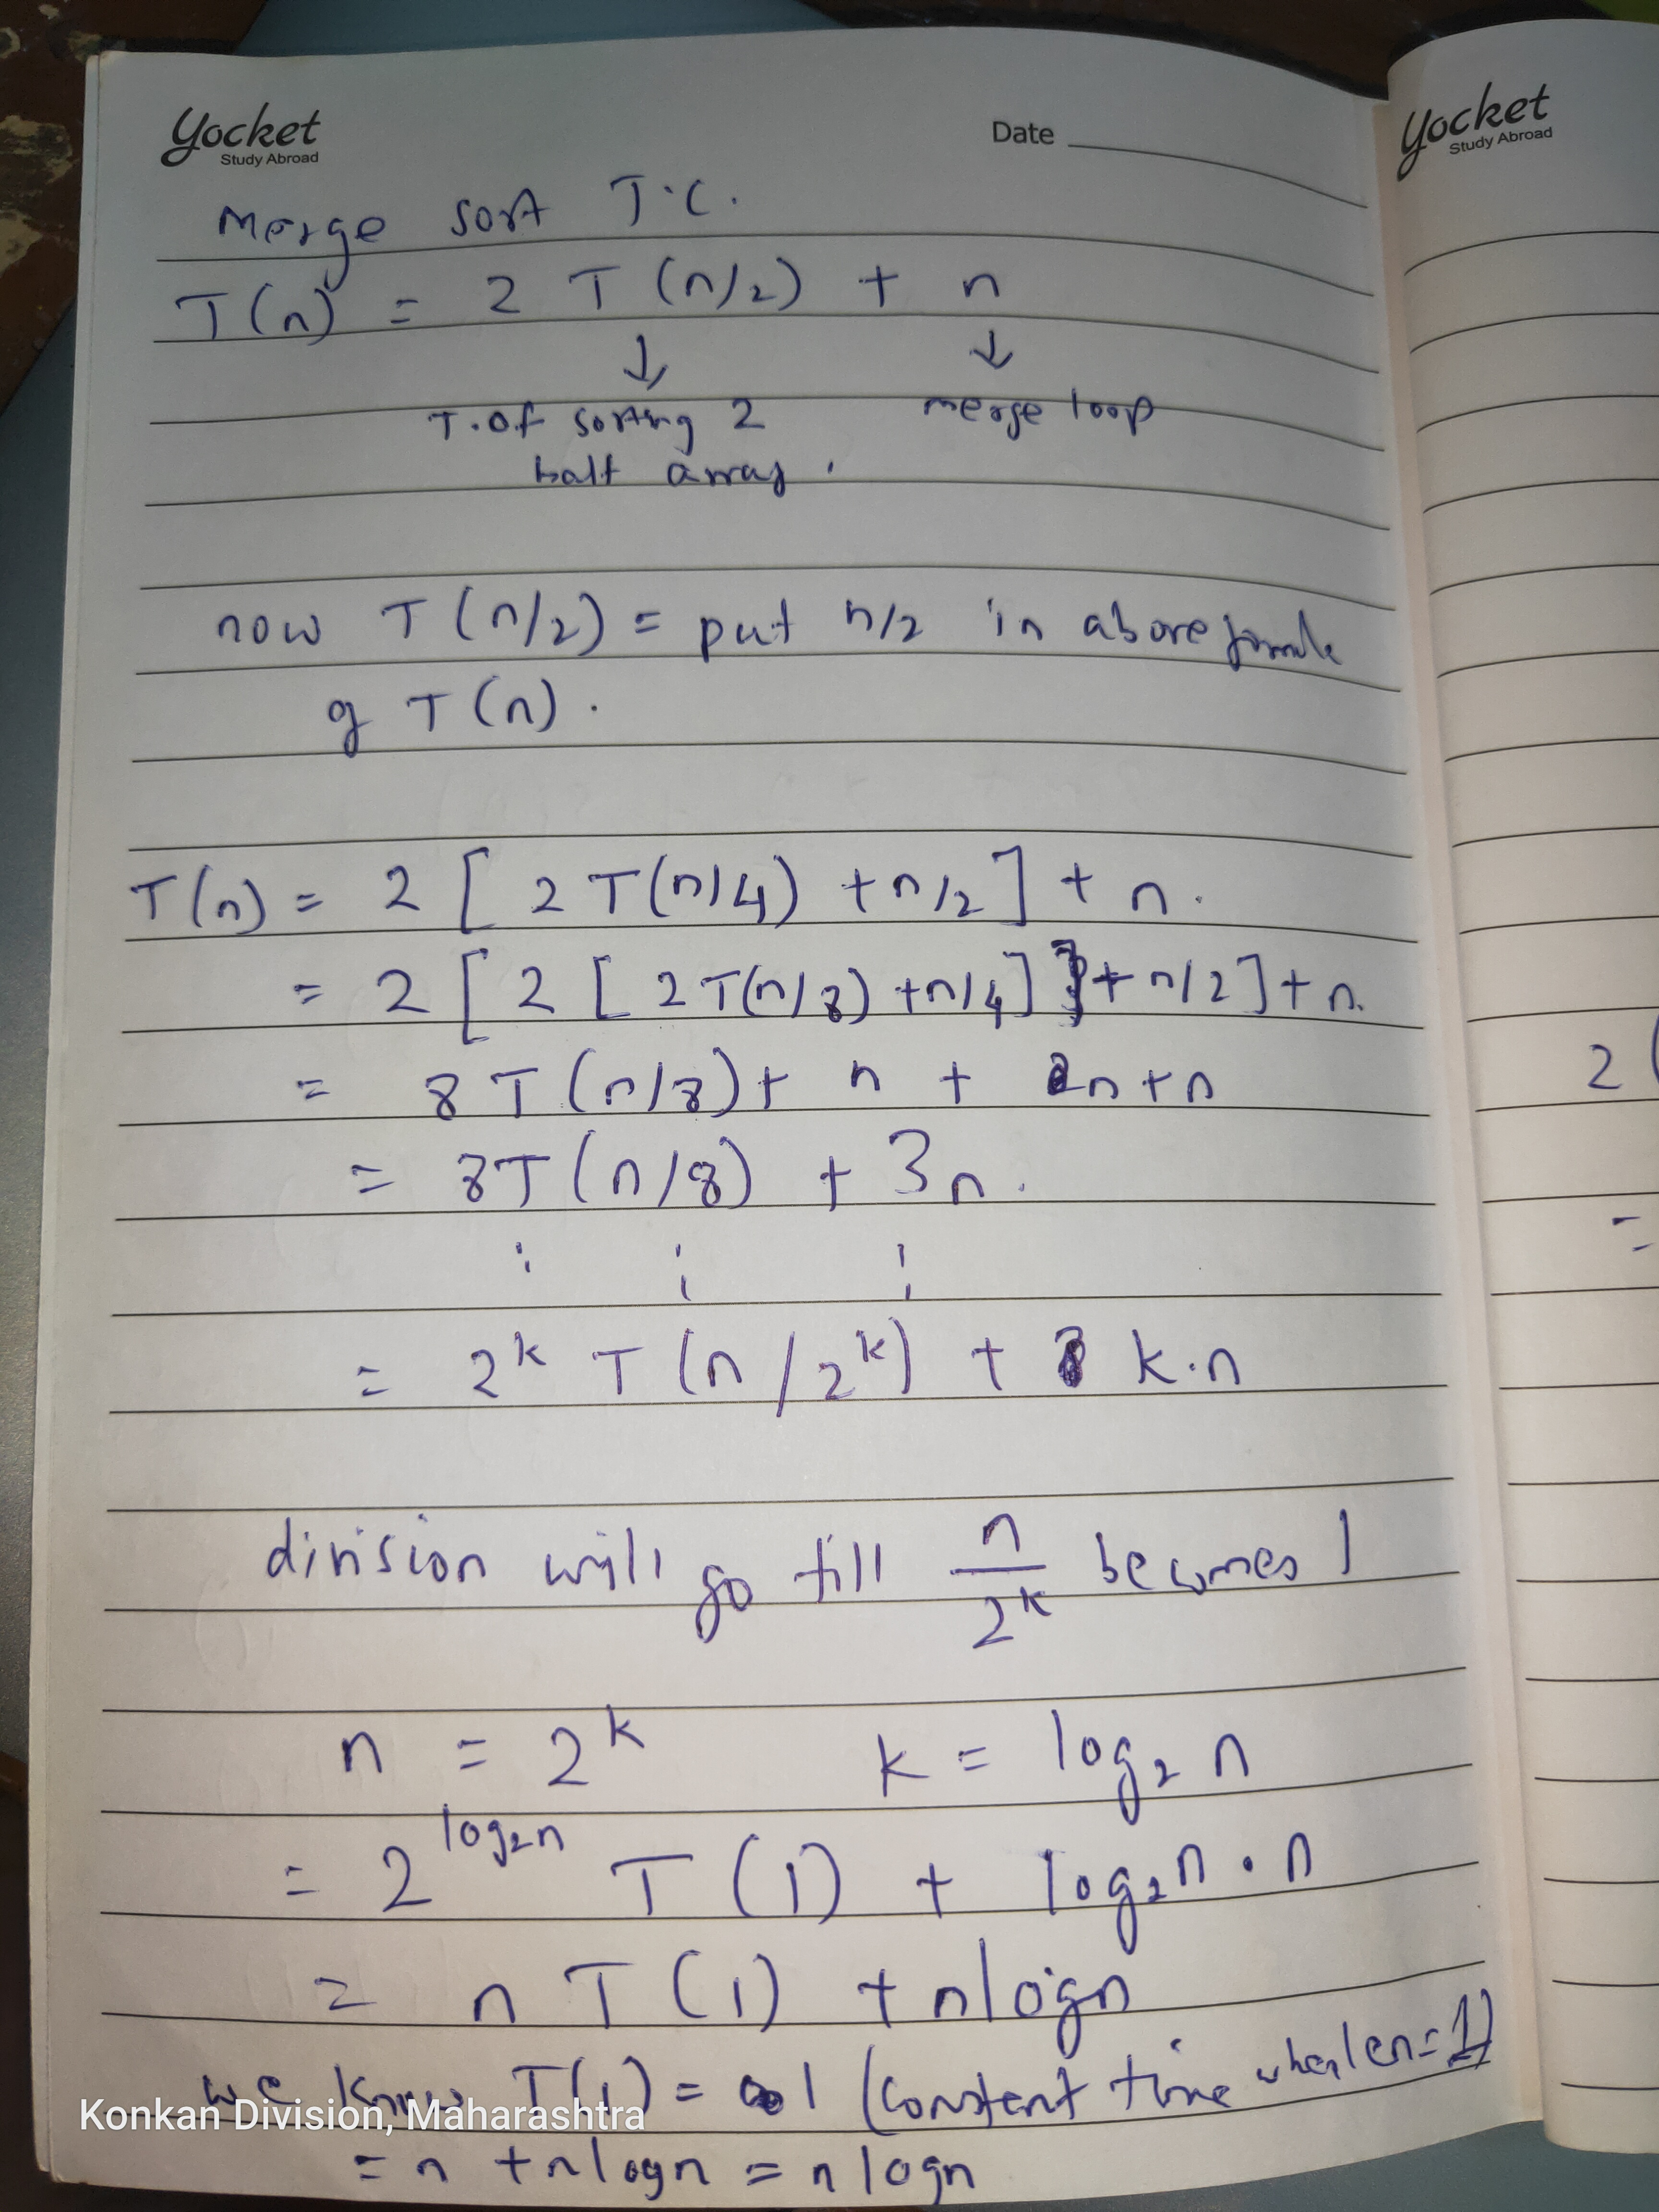 yocket
Study Abroad
Date
Merge sort T.C.
T(n) = 2 T (n/2) + n
↓ ↓
T. of sorting 2 merge loop
half array.
now T (n/2) = put n/2 in above formula
of T(n).
T(n) = 2 [ 2 T(n/4) + n/2 ] + n.
= 2 [ 2 [ 2 T(n/8) + n/4 ] + n/2 ] + n.
= 8 T (n/8) + n + n + n
= 8T (n/8) + 3n.
⋮ ⋮ ⋮
= 2^k T (n / 2^k) + k.n
division will go till n/2^k becomes 1
n = 2^k k = log₂ n
= 2^log₂n T (1) + log₂n · n
= n T (1) + nlogn
we know T(1) = 1 (constent time when len = 1)
= n + nlogn = n logn
yocket
Study Abroad
2 (
=
Konkan Division, Maharashtra